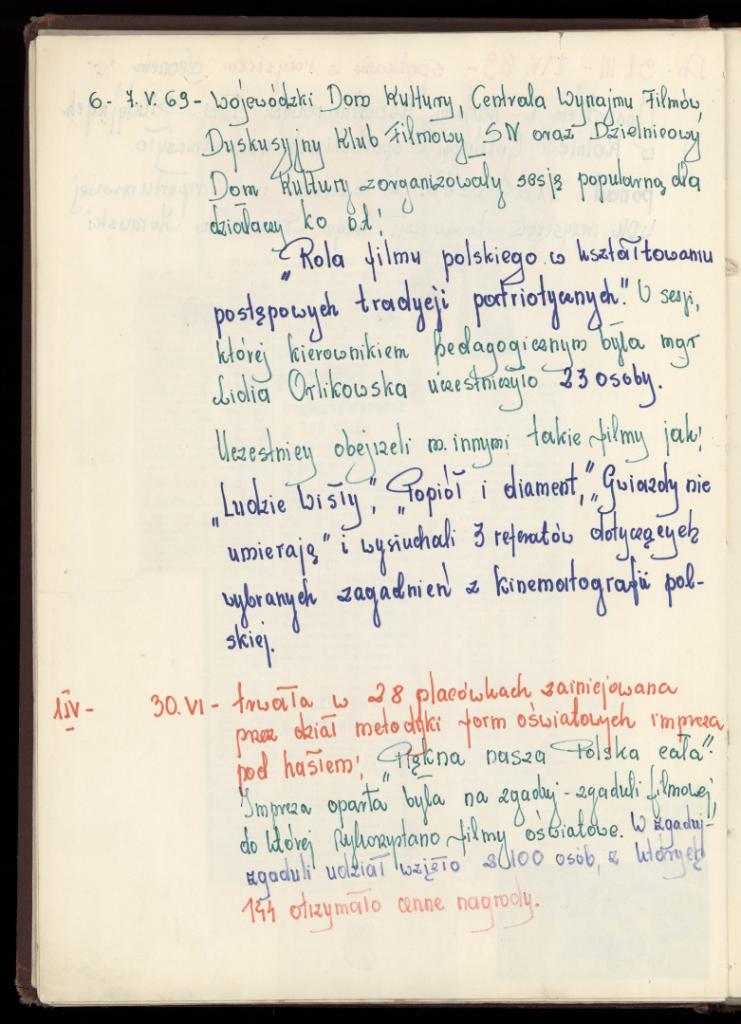 6-7.V.69- Wojewódzki Dom Kultury, Centrala Wynajmu Filmów,
Dyskusyjny Klub Filmowy SN oraz Dzielnicowy
Dom Kultury zorganizowały sesję popularną dla
działaczy ko p.t!
"Rola filmu polskiego w kształtowaniu
postępowych tradycji patriotycznych." U sesji,
której kierownikiem pedagogicznym była mgr
Lidia Orlikowska uczestniczyło 23 osoby.
Uczestnicy obejrzeli m.innymi takie filmy jak!
"Ludzie Wisły", "Popiół i diament," "Gwiazdy nie
umierają" i wysłuchali 3 referatów dotyczących
wybranych zagadnień z kinematografii pol-
skiej.
1.IV- 30.VI- trwała w 28 placówkach zainicjowana
przez dział metodyki form oświatowych impreza
pod hasłem! "Piękna nasza Polska cała".
Impreza oparta była na zgaduj-zgaduli filmowej,
do której wykorzystano filmy oświatowe. W zgaduj-
zgaduli udział wzięło 2.100 osób, z których
144 otrzymało cenne nagrody.